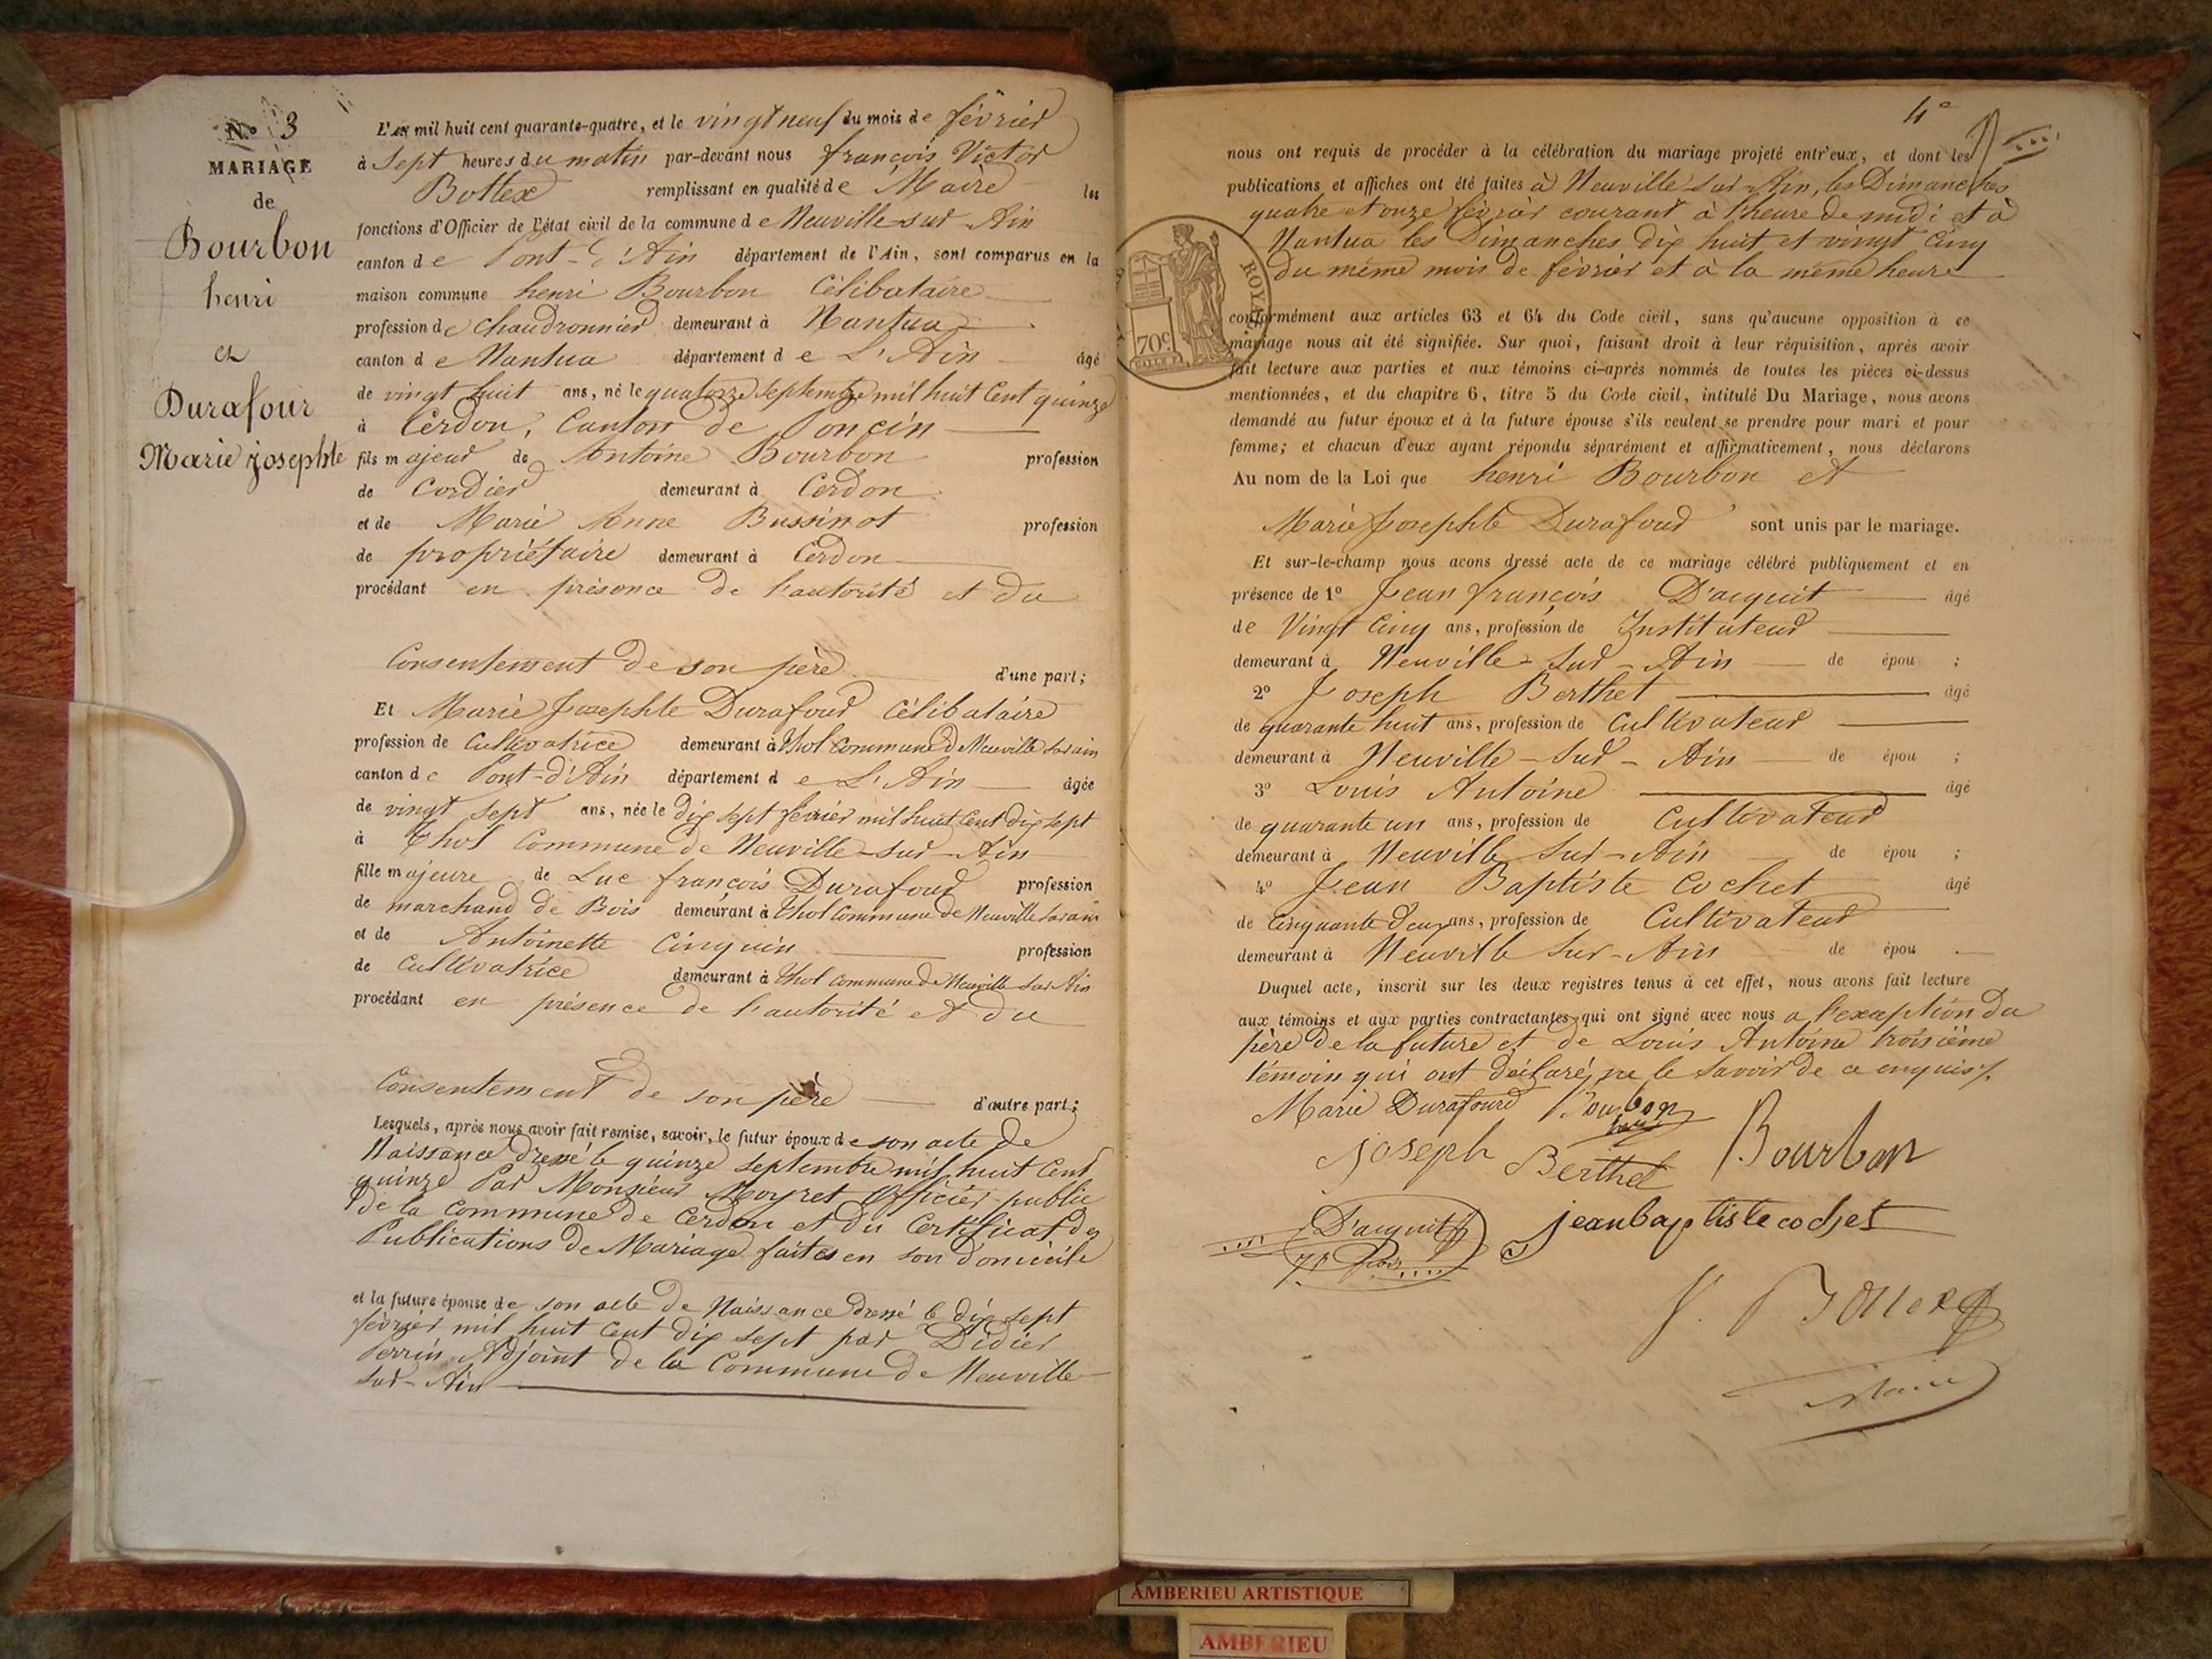 N.o 3
MARIAGE
de
Bourbon
henri
et
Durafour
Marie josephte
L'an mil huit cent quarante-quatre, et le vingt neuf du mois de février
à Sept heures du matin par-devant nous françois Victor
Bottex remplissant en qualité de Maire les
fonctions d'Officier de l'état civil de la commune de Neuville-sur-Ain
canton de Pont-d'Ain département de l'Ain, sont comparus en la
maison commune henri Bourbon Célibataire
profession de chaudronnier demeurant à Nantua
canton de Nantua département de L'Ain âgé
de vingt huit ans, né le quatorze septembre mil huit Cent quinze
à Cerdon, Canton de Poncin
fils majeur de Antoine Bourbon profession
de Cordier demeurant à Cerdon
et de Marie Anne Bussinot profession
de propriétaire demeurant à Cerdon
procédant en présence de l'autorité et du
Consentement de son père d'une part;
Et Marie Josephte Durafour Célibataire
profession de Cultivatrice demeurant à Thol Commune de Neuville sur ain
canton de Pont-d'Ain département de L'Ain âgée
de vingt sept ans, née le dix sept février mil huit Cent dix sept
à Thol Commune de Neuville-sur-Ain
fille majeure de Luc françois Durafour profession
de marchand de Bois demeurant à Thol Commune de Neuville sur ain
et de Antoinette Cinquin profession
de Cultivatrice demeurant à Thol Commune de Neuville sur Ain
procédant en présence de l'autorité et du
Consentement de son père d'autre part;
Lesquels, après nous avoir fait remise, savoir, le futur époux de son acte de
Naissance dressé le quinze septembre mil huit Cent
quinze Par Monsieur Moyret Officier public
de la Commune de Cerdon et du Certificat des
Publications de Mariage faites en son domicile
et la future épouse de son acte de Naissance dressé le dix sept
février mil huit Cent dix sept par Didier
Perrin Adjoint de la Commune de Neuville
sur-Ain
4e
nous ont requis de procéder à la célébration du mariage projeté entr'eux, et dont les
publications et affiches ont été faites à Neuville sur-Ain, les Dimanches
quatre et onze février courant à l'heure de midi et à
Nantua les Dimanches dix huit et vingt Cinq
du même mois de février et à la même heure
ROYAL
70c
conformément aux articles 63 et 64 du Code civil, sans qu'aucune opposition à ce
mariage nous ait été signifiée. Sur quoi, faisant droit à leur réquisition, après avoir
fait lecture aux parties et aux témoins ci-après nommés de toutes les pièces ci-dessus
mentionnées, et du chapitre 6, titre 5 du Code civil, intitulé Du Mariage, nous avons
demandé au futur époux et à la future épouse s'ils veulent se prendre pour mari et pour
femme; et chacun d'eux ayant répondu séparément et affirmativement, nous déclarons
Au nom de la Loi que henri Bourbon et
Marie Josephte Durafour sont unis par le mariage.
Et sur-le-champ nous avons dressé acte de ce mariage célébré publiquement et en
présence de 1o Jean françois D'acquit âgé
de Vingt Cinq ans, profession de Instituteur
demeurant à Neuville-Sur-Ain de épou ;
2o Joseph Berthet âgé
de quarante huit ans, profession de Cultivateur
demeurant à Neuville-Sur-Ain de épou ;
3o Louis Antoine âgé
de quarante un ans, profession de Cultivateur
demeurant à Neuville Sur-Ain de épou ;
4o Jean Baptiste Cochet âgé
de Cinquante deux ans, profession de Cultivateur
demeurant à Neuville Sur-Ain de épou
Duquel acte, inscrit sur les deux registres tenus à cet effet, nous avons fait lecture
aux témoins et aux parties contractantes, qui ont signé avec nous a l'exception du
père de la future et de Louis Antoine troisième
témoin qui ont déclaré ne le savoir de ce enquis
Marie Durafourd Bourbon
joseph Berthet Bourbon
D'acquit jeanbaptistecochet
V. Bottex
Maire
AMBERIEU ARTISTIQUE
AMBERIEU